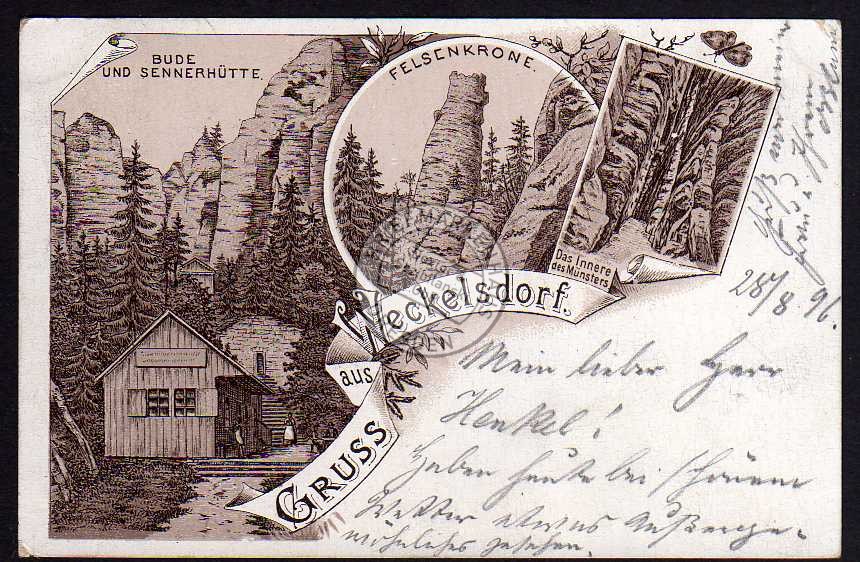 BUDE
UND SENNERHÜTTE.
FELSENKRONE.
Das Innere
des Münsters
GRUSS
aus
Weckelsdorf.
28/8 96.
Mein lieber Herr
Henkel!
Haben heute bei schönem
Wetter etwas Außerge-
wöhnliches gesehen.